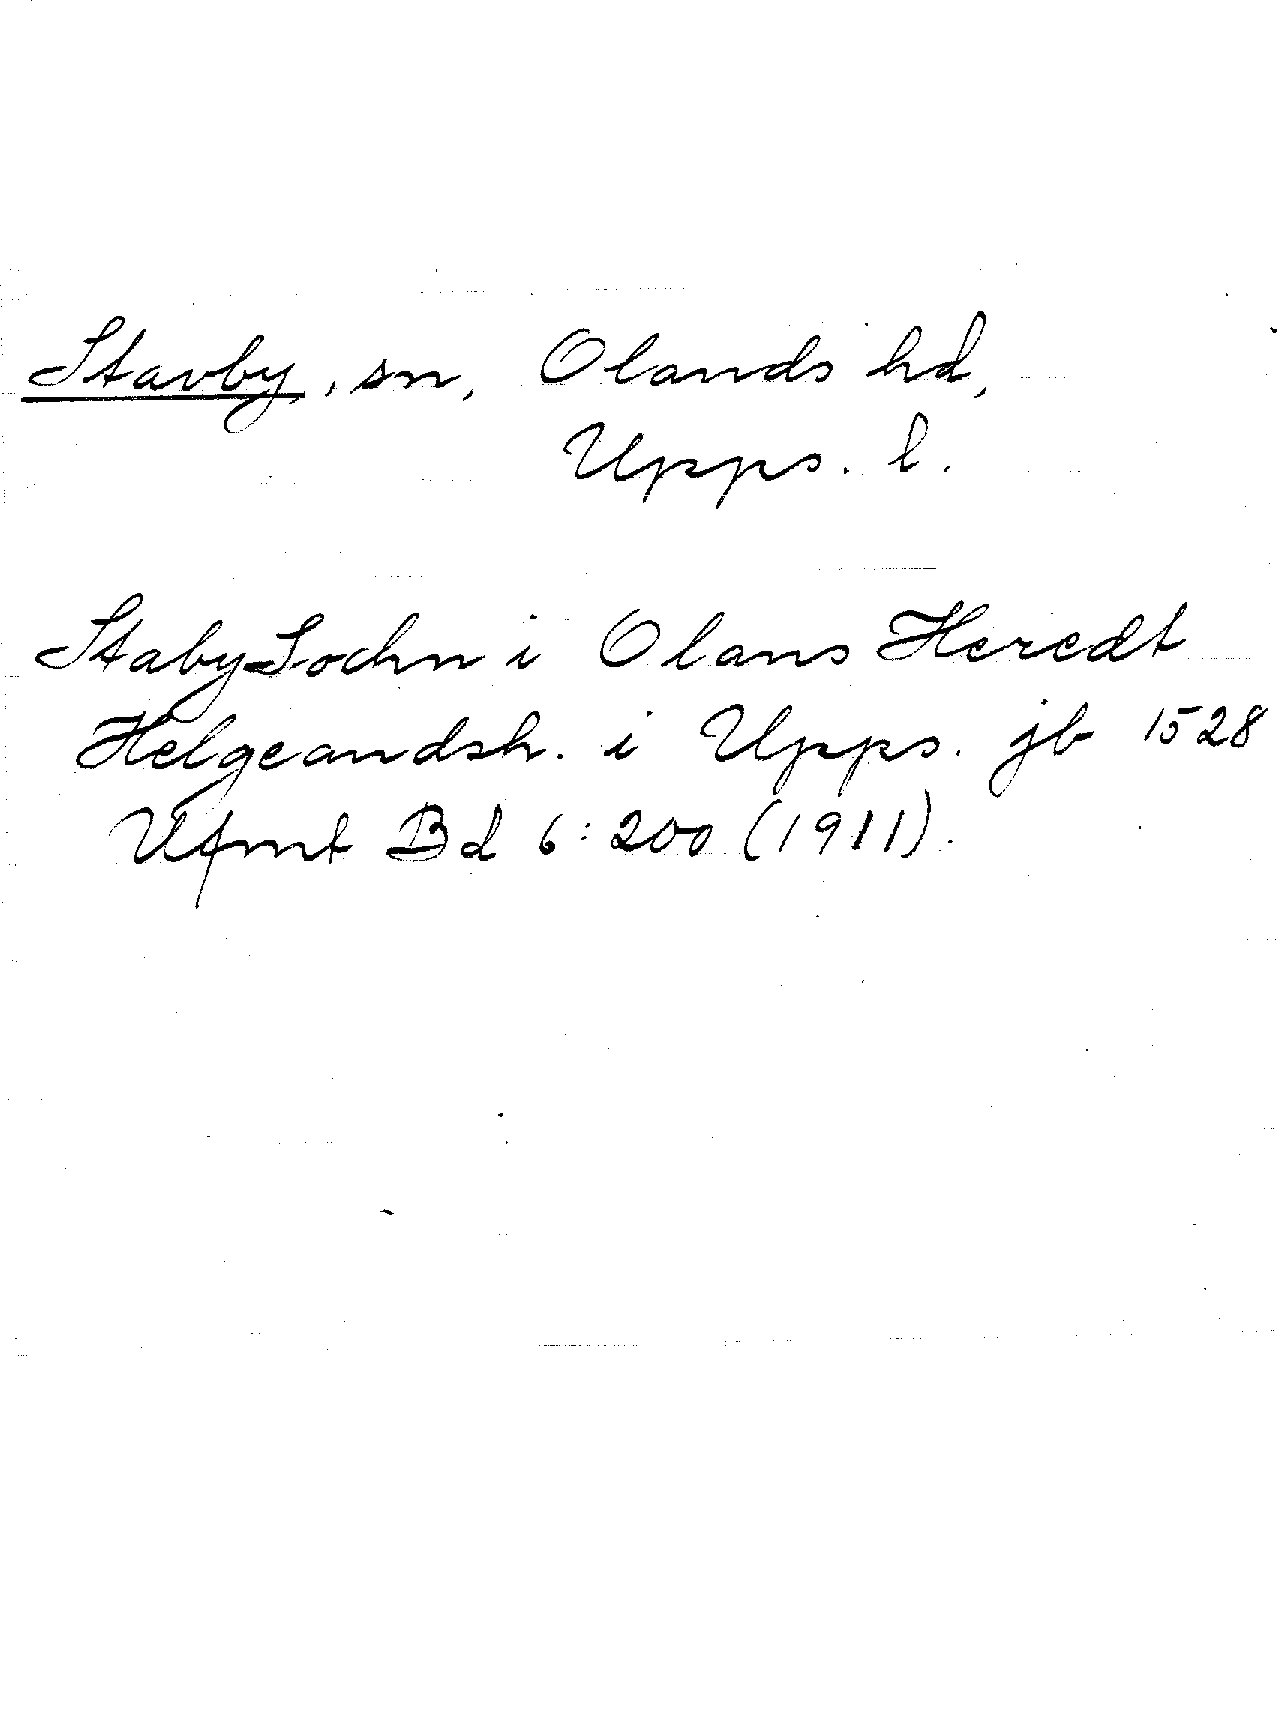 Stavby, sn, Olands hd,
Upps. l.
Staby Sochn i Olans Heredt
Helgeandsh. i Upps. jb 1528
Ufmt Bd 6:200 (1911).